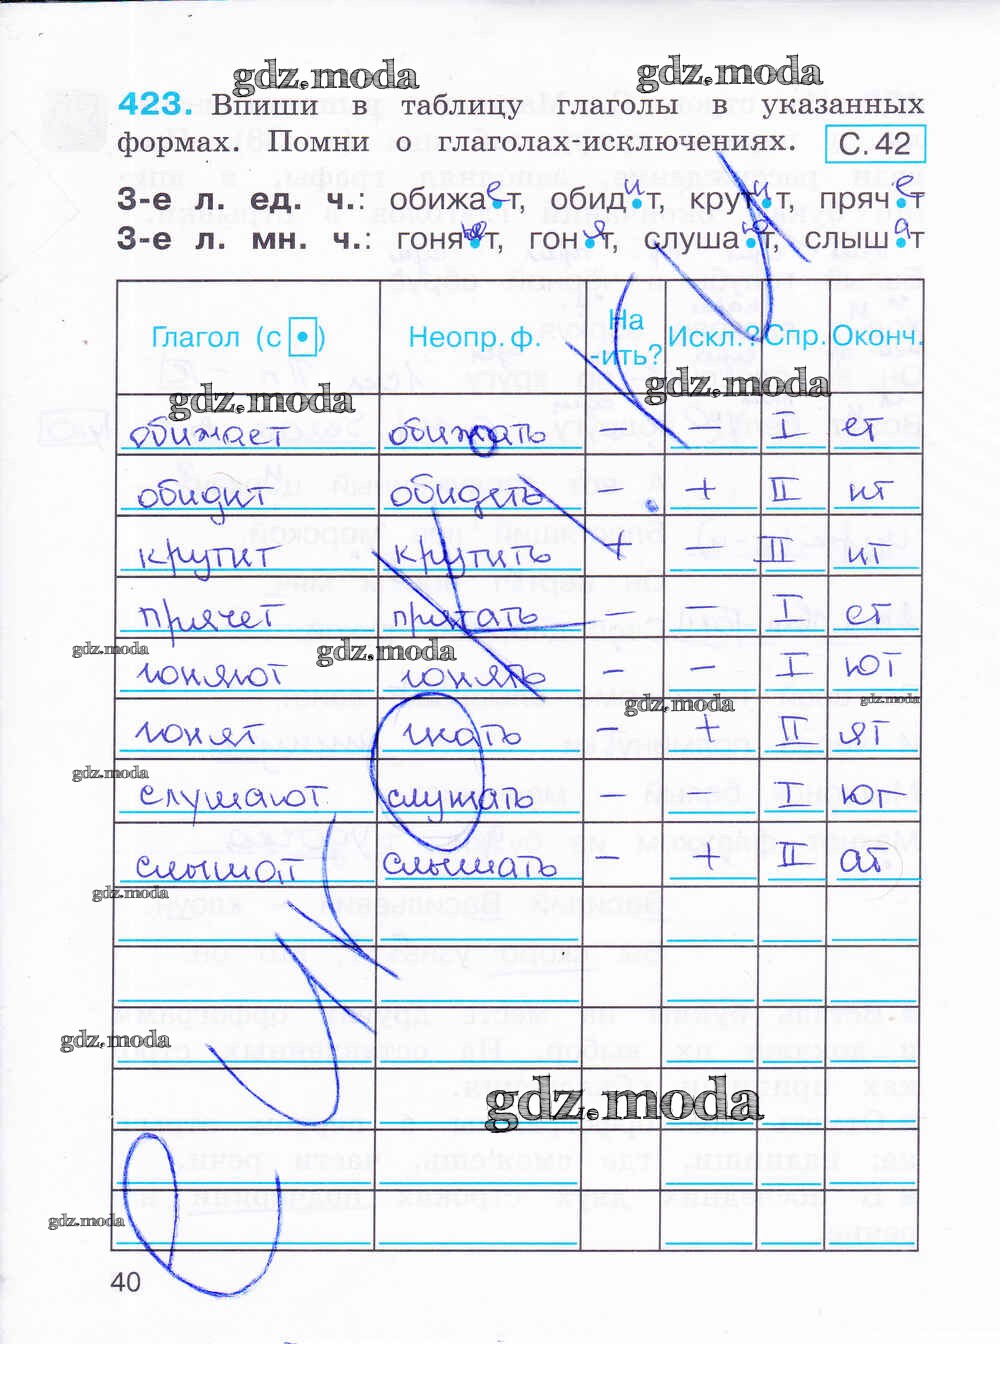 gdz.moda gdz.moda
423. Впиши в таблицу глаголы в указанных
формах. Помни о глаголах-исключениях. С. 42
3-е л. ед. ч.: обижает, обидит, крутит, прячет
3-е л. мн. ч.: гоняют, гонят, слушают, слышат
Глагол (с •) Неопр. ф. На -ить? Искл.? Спр. Оконч.
gdz.moda gdz.moda
обижает обижать – I ет
обидит обидеть – + II ит
крутит крутить + – II ит
прячет прятать – – I ет
gdz.moda gdz.moda
гоняют гонять – – I ют
gdz.moda gdz.moda
гонят гнать – + II ят
gdz.moda
слушают слушать – I ют
слышат слышать – + II ат
gdz.moda
gdz.moda
gdz.moda
gdz.moda
40